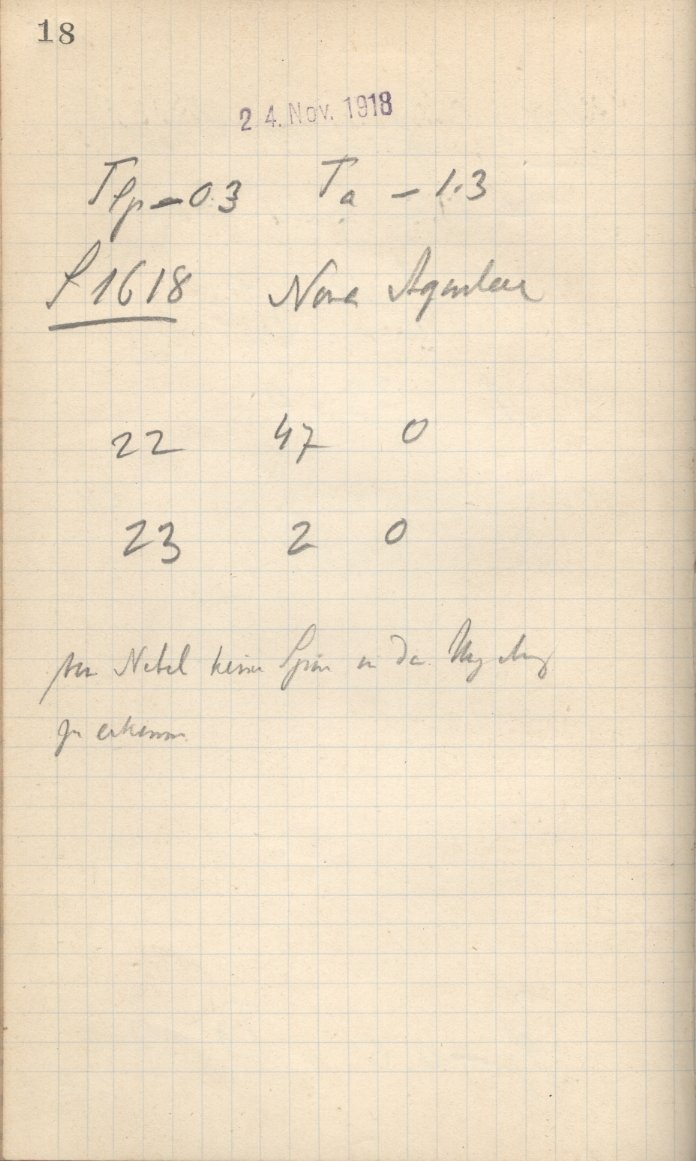 18
24. Nov. 1918
Tsp – 0.3 Ta – 1.3
S 1618 Nova Aquilae
22 47 0
23 2 0
von Nebel keine Spur in der Umgebung
zu erkennen